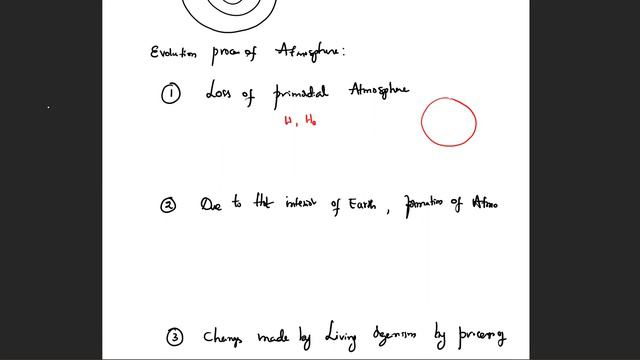 Evolution proces of Atmosphere:
① Loss of primodial Atmosphere
H, He
② Due to that interior of Earth, formation of Atmo
③ Changs made by Living Organism by